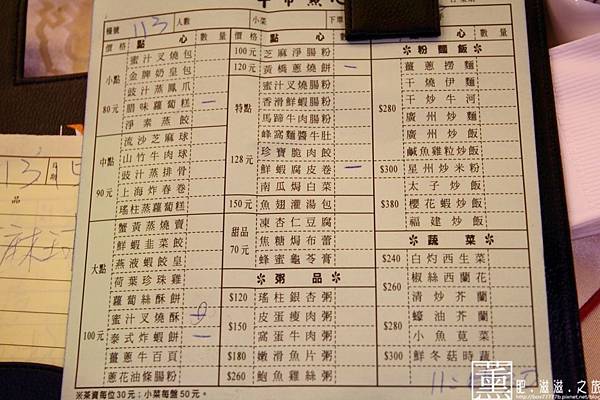 午市點心
檯號 113 人數 小菜 下單
價格 點心 數量 價格 點心 數量
小點 80元
蜜汁叉燒包
金牌奶皇包
豉汁蒸鳳爪
腊味蘿蔔糕 一
淨素蒸餃
中點 90元
流沙芝麻球
山竹牛肉球
豉汁蒸排骨
上海炸春卷
瑤柱蒸蘿蔔糕
大點 100元
蟹黃蒸燒賣
鮮蝦韭菜餃
蒸液蝦餃皇
荷葉珍珠雞
蘿蔔絲酥餅
蜜汁叉燒酥
泰式炸蝦餅 一
薑蔥牛百頁
蔥花油條腸粉
100元 芝麻淨腸粉
120元 黃橋蔥燒餅 一
特點 128元
蜜汁叉燒腸粉
香滑鮮蝦腸粉
馬蹄牛肉腸粉
蜂窩麵醬牛肚
珍寶脆肉餃
鮮蝦腐皮卷 一
南瓜焗白菜
150元 魚翅灌湯包
甜品 70元
凍杏仁豆腐
焦糖焗布蕾
蜂蜜龜苓膏
✽ 粥品 ✽
$120 瑤柱銀杏粥
$150
皮蛋瘦肉粥
窩蛋牛肉粥
$180 嫩滑魚片粥
$260 鮑魚雞絲粥
✽ 粉麵飯 ✽
$280
薑蔥撈麵
干燒伊麵
干炒牛河
廣州炒麵
廣州炒飯
鹹魚雞粒炒飯
$300 星州炒米粉
$380
太子炒飯
櫻花蝦炒飯
福建炒飯
✽ 蔬菜 ✽
$240 白灼西生菜
$260
椒絲西蘭花
清炒芥蘭
$280
蠔油芥蘭
小魚莧菜
$300 鮮冬菇時蔬
※茶資每位30元；小菜每盤50元。
薰 肥.滋滋.之旅